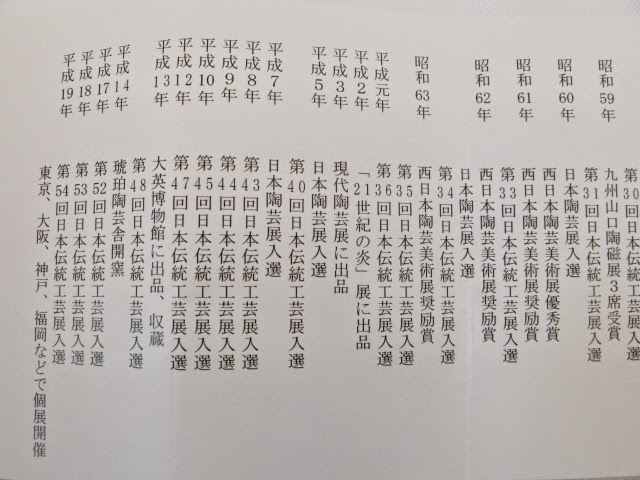 第30回日本伝統工芸展入選
昭和59年 九州山口陶磁展3席受賞
第31回日本伝統工芸展入選
昭和60年 日本陶芸展入選
西日本陶芸美術展優秀賞
昭和61年 西日本陶芸美術展奨励賞
第33回日本伝統工芸展入選
昭和62年 西日本陶芸美術展奨励賞
日本陶芸展入選
第34回日本伝統工芸展入選
昭和63年 西日本陶芸美術展奨励賞
第35回日本伝統工芸展入選
平成元年 第36回日本伝統工芸展入選
平成2年 「21世紀の炎」展に出品
平成3年 現代陶芸展に出品
平成5年 日本陶芸展入選
第40回日本伝統工芸展入選
平成7年 日本陶芸展入選
平成8年 第43回日本伝統工芸展入選
平成9年 第44回日本伝統工芸展入選
平成10年 第45回日本伝統工芸展入選
平成12年 第47回日本伝統工芸展入選
平成13年 大英博物館に出品、収蔵
第48回日本伝統工芸展入選
平成14年 琥珀陶芸舎開窯
平成17年 第52回日本伝統工芸展入選
平成18年 第53回日本伝統工芸展入選
平成19年 第54回日本伝統工芸展入選
東京、大阪、神戸、福岡などで個展開催